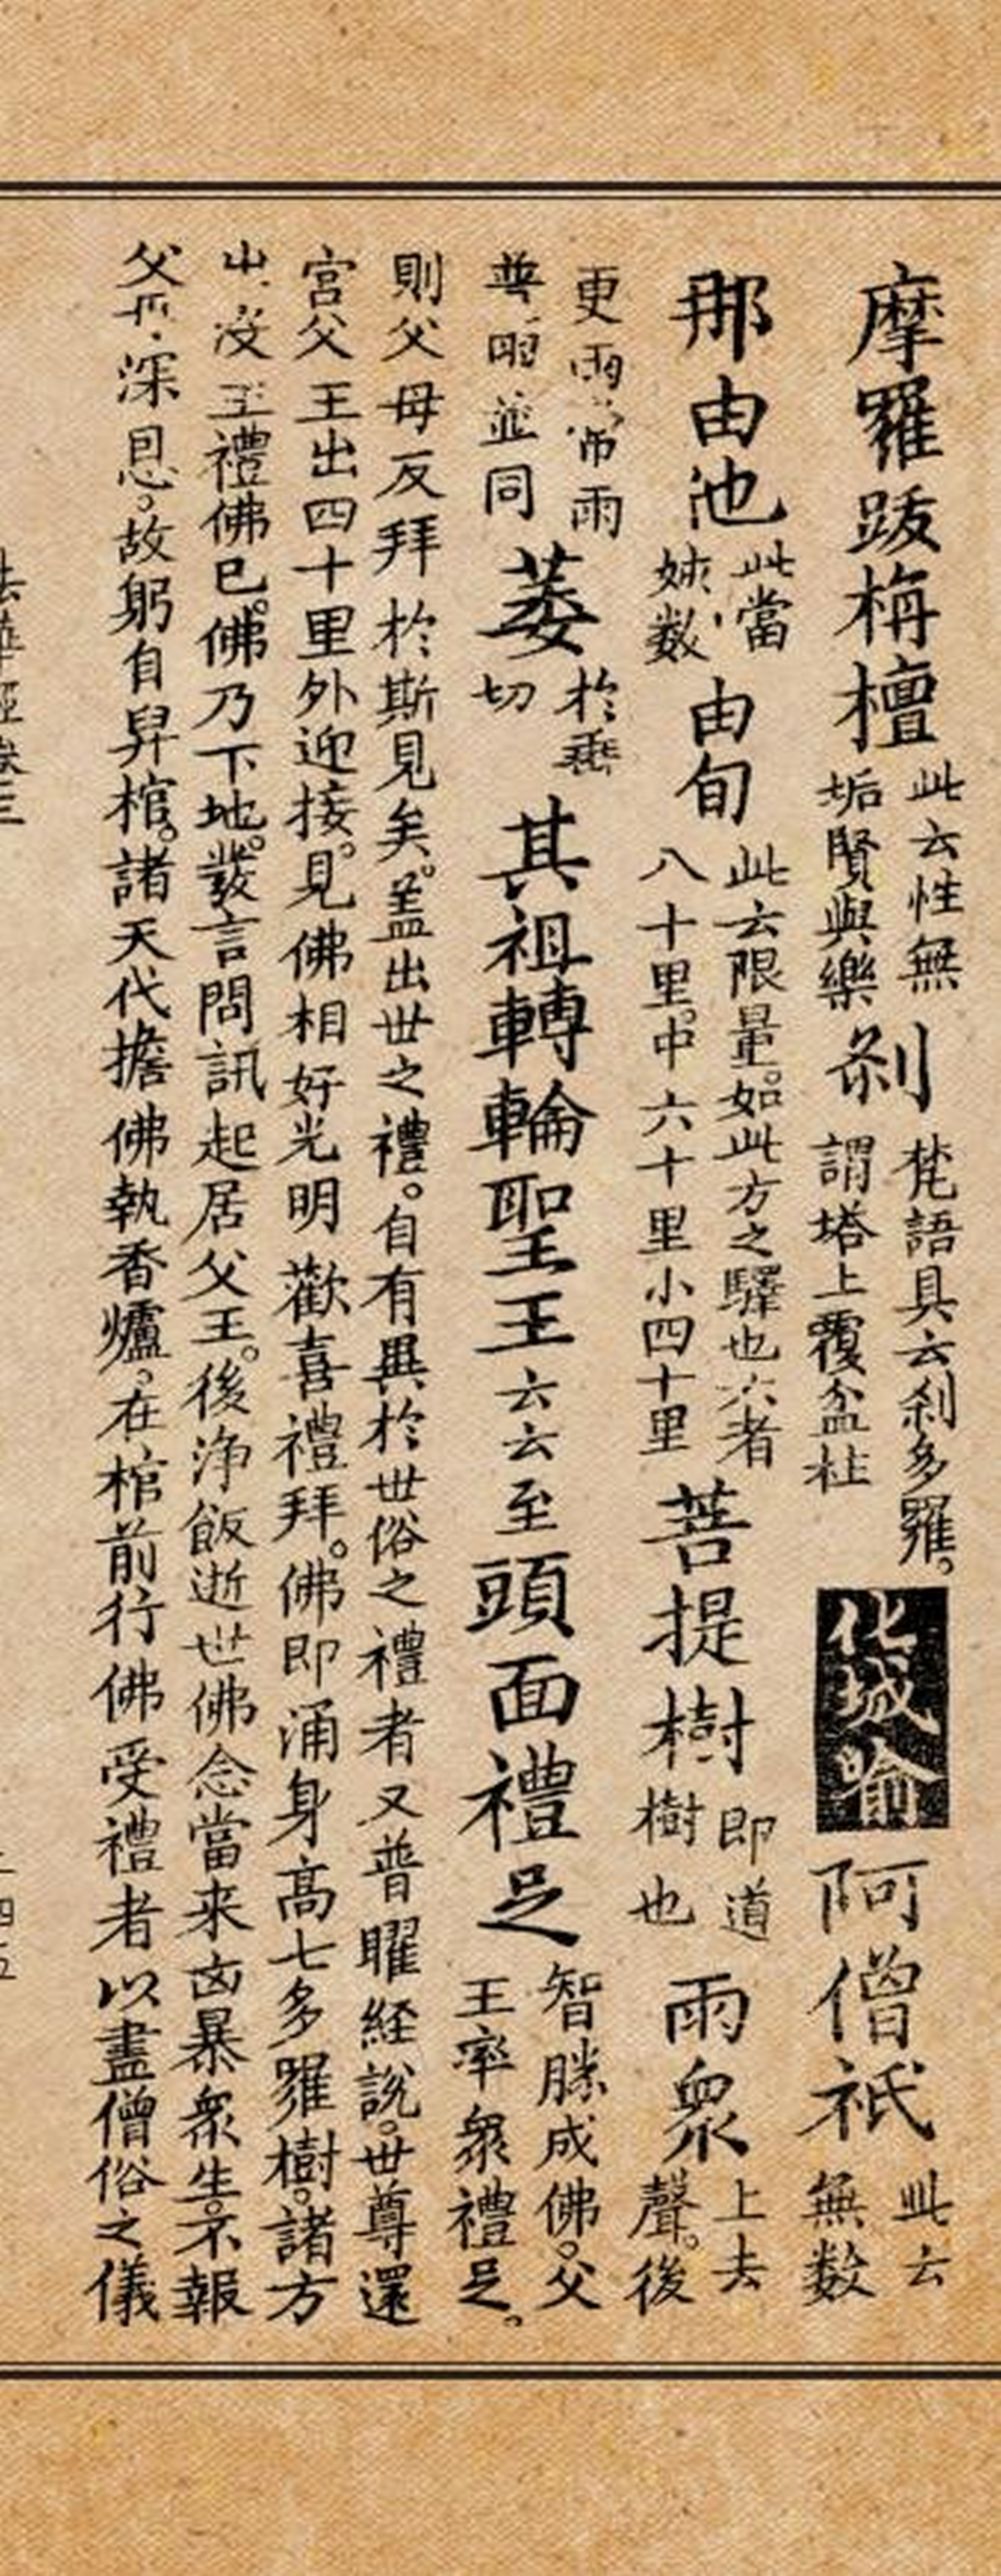 摩羅跋栴檀此云性無垢賢與樂剎梵語具云剎多羅。謂塔上覆盆柱化城喻阿僧祇此云無数
那由他此當姟数由旬此云限量。如此方之驛也大者八十里。中六十里小四十里菩提樹即道樹也雨衆上去聲。後
更雨雨普雨並同萎於垂切其祖轉輪聖王云云至頭面禮足智勝成佛。父王率衆禮足。
則父母反拜於斯見矣。盖出世之禮。自有異於世俗之禮者又普曜経説。世尊還
宮父王出四十里外迎接。見佛相好光明歡喜禮拜。佛即涌身髙七多羅樹。諸方
出没王禮佛已。佛乃下地。發言問訊起居父王。後浄飯逝世佛念當来㐫暴衆生。不報
父母深恩。故躬自舁棺。諸天代擔佛執香爐。在棺前行佛受禮者以盡僧俗之儀